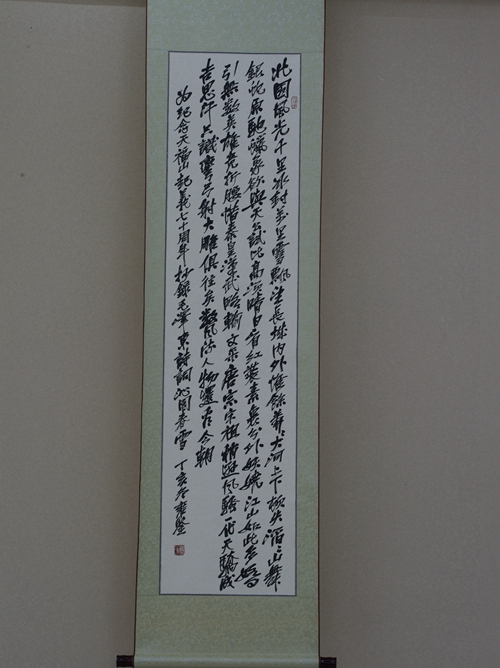 北國風光千里冰封万里雪飄望長城内外惟餘莽莽大河上下頓失滔滔山舞
銀蛇原馳蠟象欲與天公試比高須晴日看紅裝素裹分外妖嬈江山如此多嬌
引無數英雄竞折腰惜秦皇漢武略輸文采唐宗宋祖稍遜风騷一代天驕成
吉思汗只識彎弓射大雕俱往矣數风流人物還看今朝
为纪念天福山起義七十周年抄錄毛澤東詩詞沁園春雪 丁亥冬